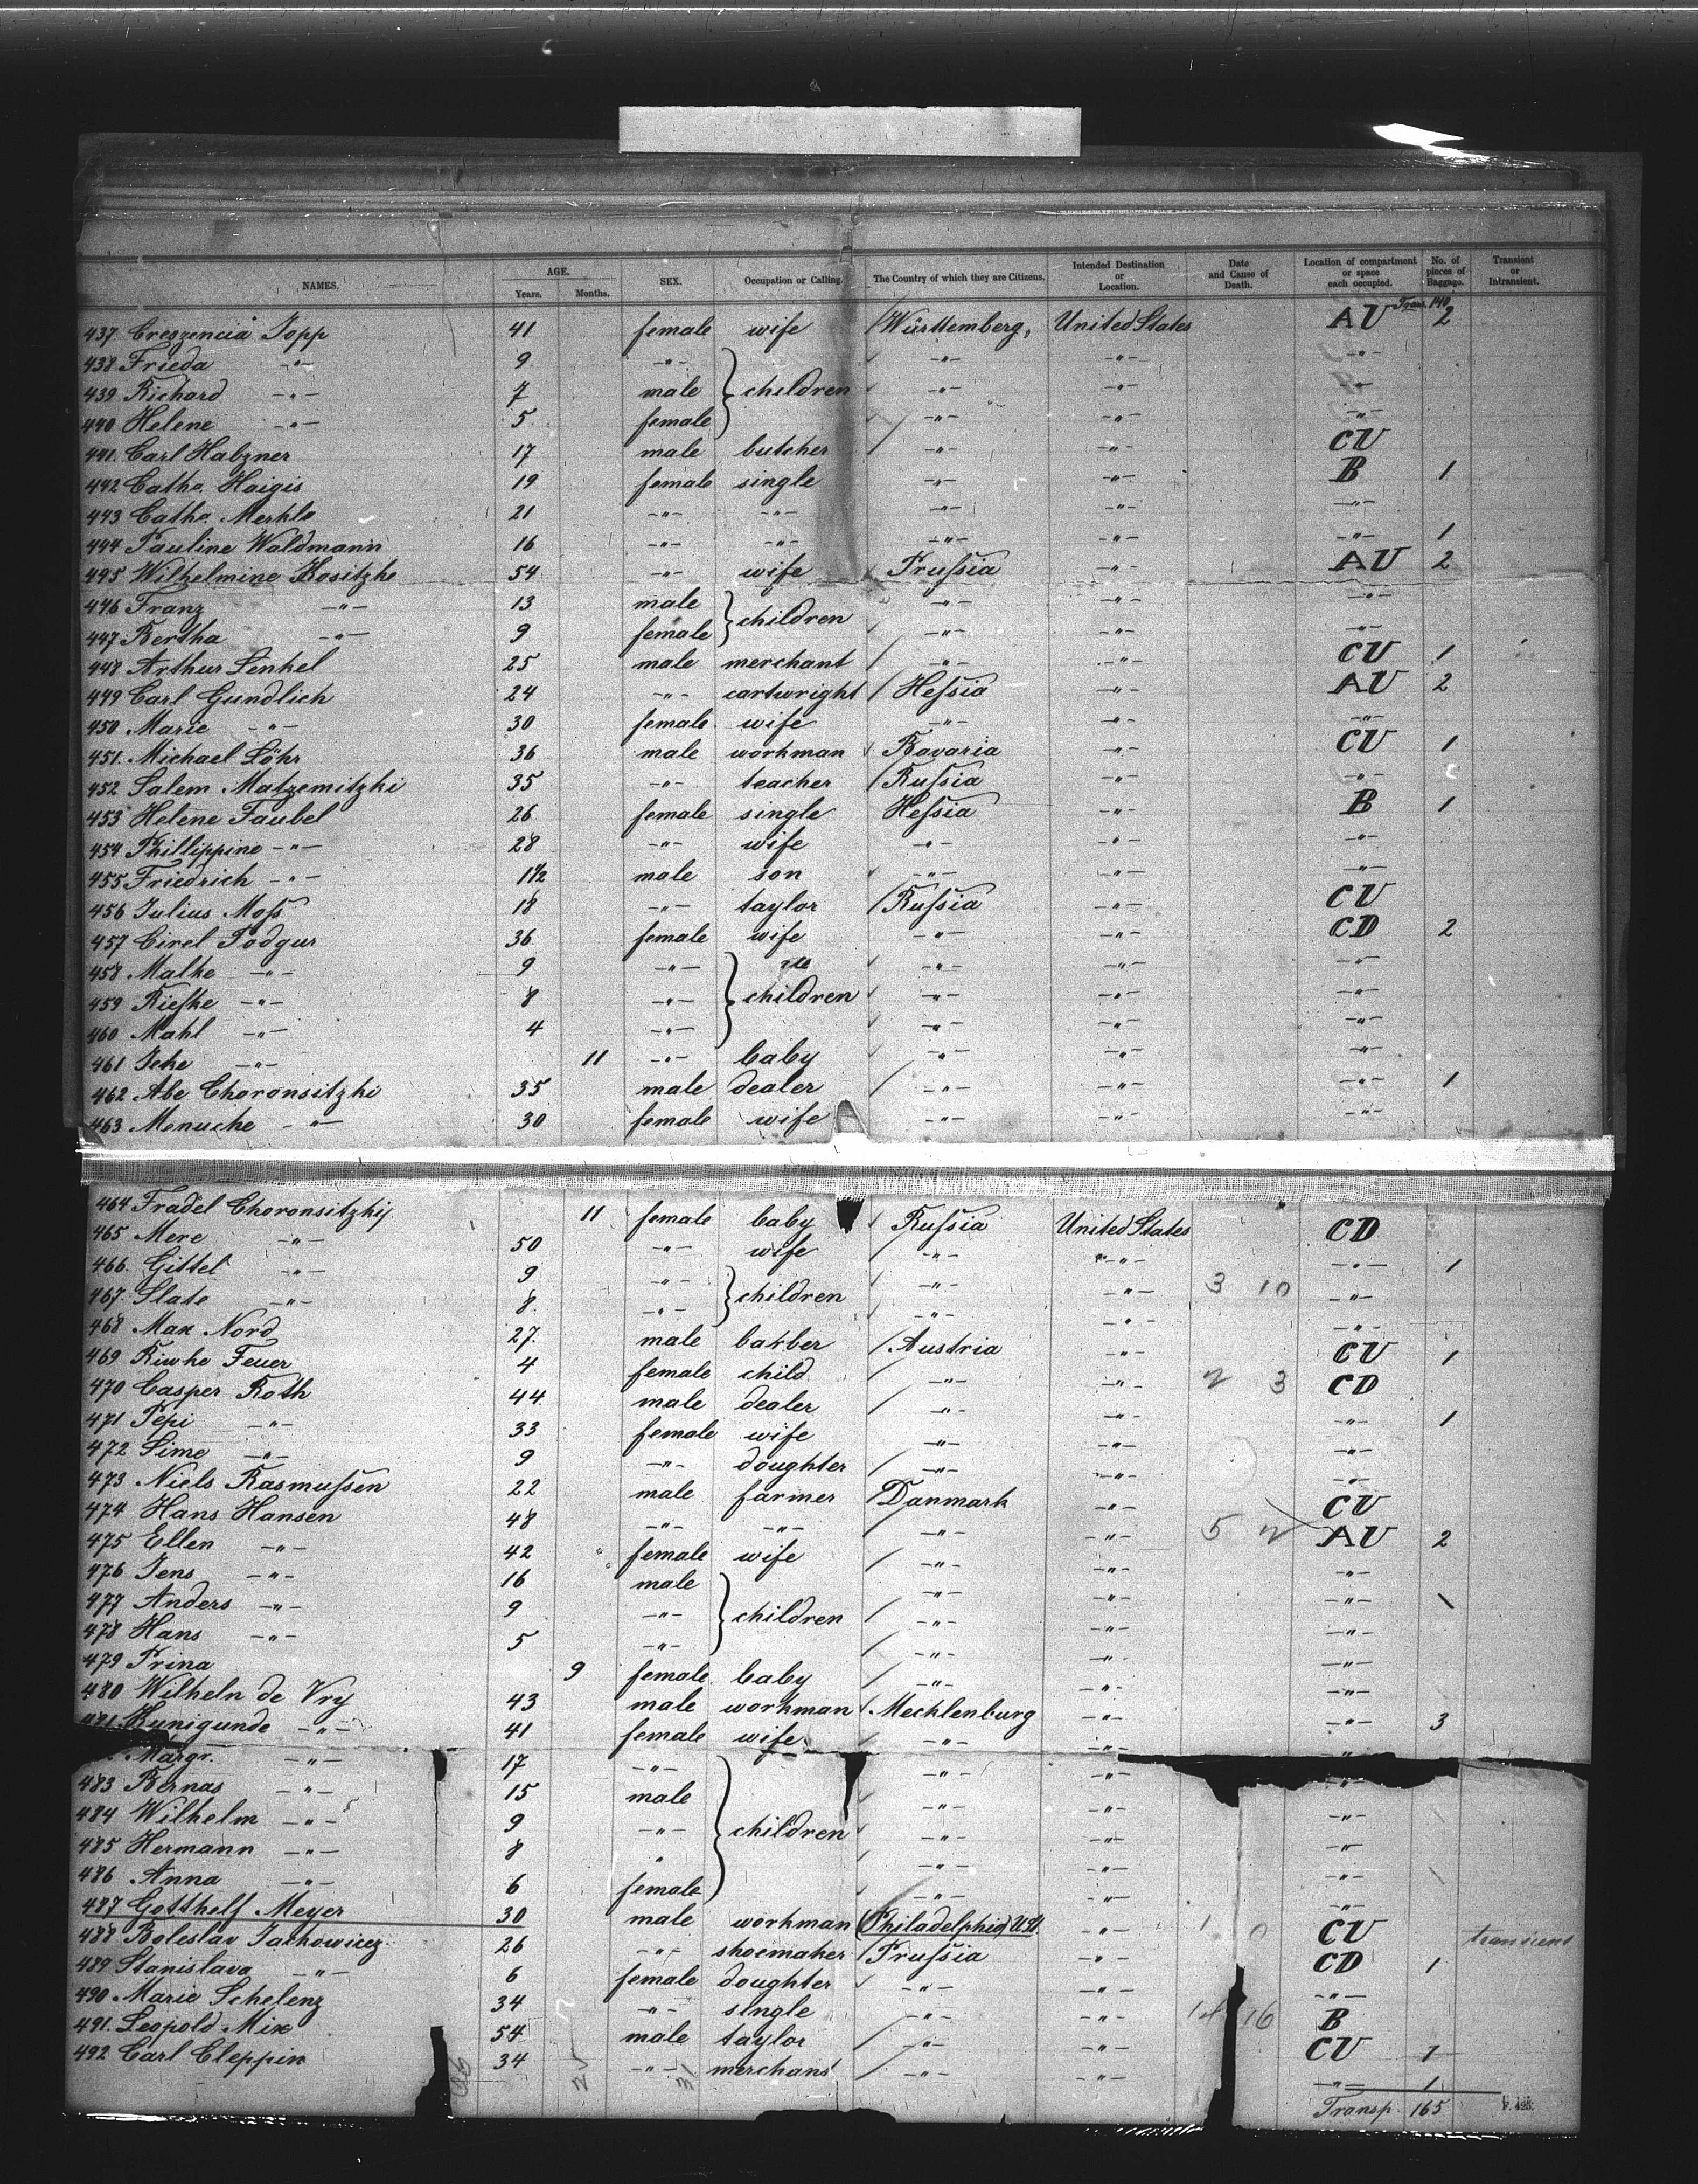 NAMES. AGE. Years. Months. SEX. Occupation or Calling. The Country of which they are Citizens. Intended Destination or Location. Date and Cause of Death. Location of compartment or space each occupied. No. of pieces of Baggage. Transient or Intransient.
Trans. 140
437 Creszencia Topp 41 female wife Württemberg, United States AU 2
438 Frieda -"- 9 -"- -"- -"- -"-
439 Richard -"- 7 male children -"- -"- -"-
440 Helene -"- 5 female -"- -"- -"-
441. Carl Habzner 17 male butcher -"- -"- CU
442 Catha. Haigis 19 female single -"- -"- B 1
443 Catha. Merkle 21 -"- -"- -"- -"- -"-
444 Pauline Waldmann 16 -"- -"- -"- -"- -"- 1
445 Wilhelmine Kositzke 54 -"- wife Prußia -"- AU 2
446 Franz -"- 13 male children -"- -"- -"-
447 Bertha -"- 9 female -"- -"- -"-
448 Arthur Senkel 25 male merchant -"- -"- CU 1
449 Carl Gundlich 24 -"- cartwright Heßia -"- AU 2
450 Marie -"- 30 female wife -"- -"- -"-
451. Michael Löhr 36 male workman Bavaria -"- CU 1
452 Salem Matzemitzki 35 -"- teacher Rußia -"- -"-
453 Helene Faubel 26 female single Heßia -"- B 1
454 Phillippine -"- 28 -"- wife -"- -"- -"-
455 Friedrich -"- 1 1/2 male son -"- -"- -"-
456 Julius Moß 18 -"- taylor Rußia -"- CU
457 Cirel Podgur 36 female wife -"- -"- CD 2
458 Malke -"- 9 -"- -"- -"- -"-
459 Riefke -"- 8 -"- children -"- -"- -"-
460 Mahl -"- 4 -"- -"- -"- -"-
461 Icke -"- 11 -"- baby -"- -"- -"-
462 Abe Choronsitzki 35 male dealer -"- -"- -"- 1
463 Menuche -"- 30 female wife -"- -"- -"-
464 Fradel Choronsitzkij 11 female baby Rußia United States CD
465 Mere -"- 50 -"- wife -"- -"- -"- 1
466. Gittel -"- 9 -"- children -"- -"- 3 10 -"-
467. Slate -"- 8 -"- -"- -"- -"-
468 Max Nord 27 male barber Austria -"- CU 1
469 Riwke Feuer 4 female child -"- -"- 2 3 CD
470 Casper Roth 44 male dealer -"- -"- -"- 1
471 Pepi -"- 33 female wife -"- -"- -"-
472 Sime -"- 9 -"- doughter -"- -"- -"-
473 Niels Rasmußen 22 male farmer Danmark -"- CU
474 Hans Hansen 48 -"- -"- -"- -"- 5 2 AU 2
475 Ellen -"- 42 female wife -"- -"- -"-
476 Jens -"- 16 male -"- -"- -"-
477 Anders -"- 9 -"- children -"- -"- -"-
478 Hans -"- 5 -"- -"- -"- -"-
479 Trina 9 female baby -"- -"- -"-
480 Wilheln de Vry 43 male workman Mecklenburg -"- -"- 3
Kunigunde -"- 41 female wife -"- -"- -"-
Margr. -"- 17 -"- -"- -"- -"-
483 Bernas -"- 15 male -"- -"- -"-
484 Wilhelm -"- 9 -"- children -"- -"- -"-
485 Hermann -"- 8 " -"- -"- -"-
486 Anna -"- 6 female -"- -"- -"-
487 Gotthelf Meyer 30 male workman Philadelphia -"- 1 0 CU transient
488 Boleslav Jachowicz 26 -"- shoemaker Prußia -"- CD 1
489 Stanislava -"- 6 female doughter -"- -"- -"-
490 Marie Schelenz 34 -"- single -"- -"- 14 16 B
491. Leopold Mix 54 male taylor -"- -"- CU 1
492 Carl Cleppin 34 -"- merchant -"- -"- -"- 1
Transp. 165